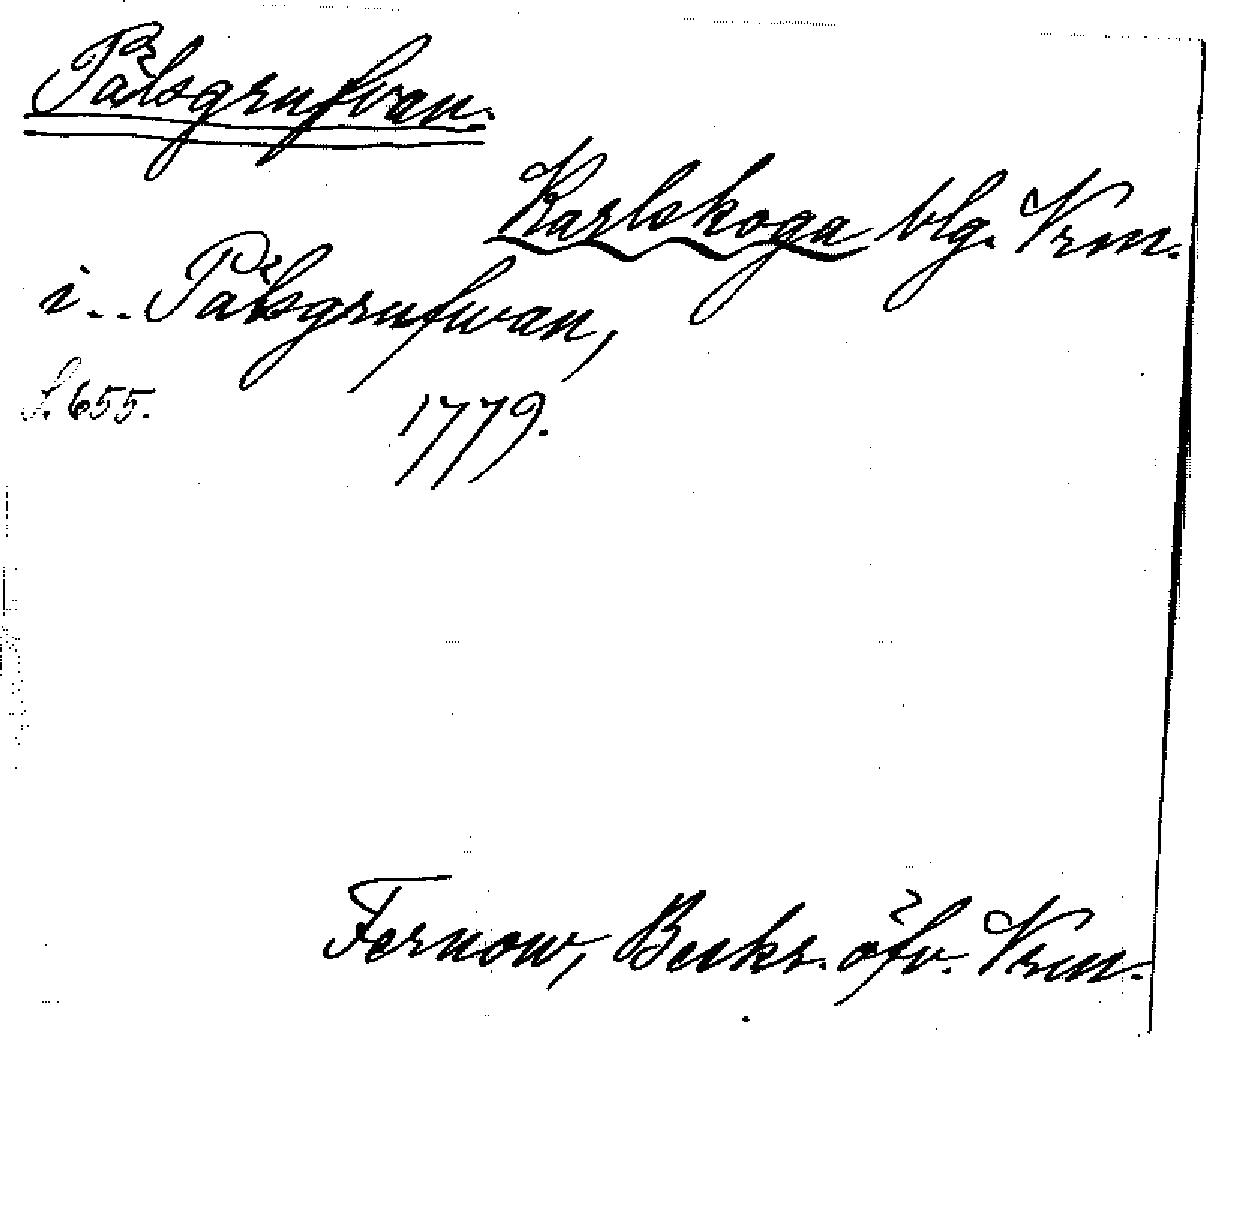 Pålsgrufvan.
Karlskoga blg. Vrm.
i.. Pålsgrufwan,
S. 655.
1779.
Fernow, Beskr. öfv. Vrm.